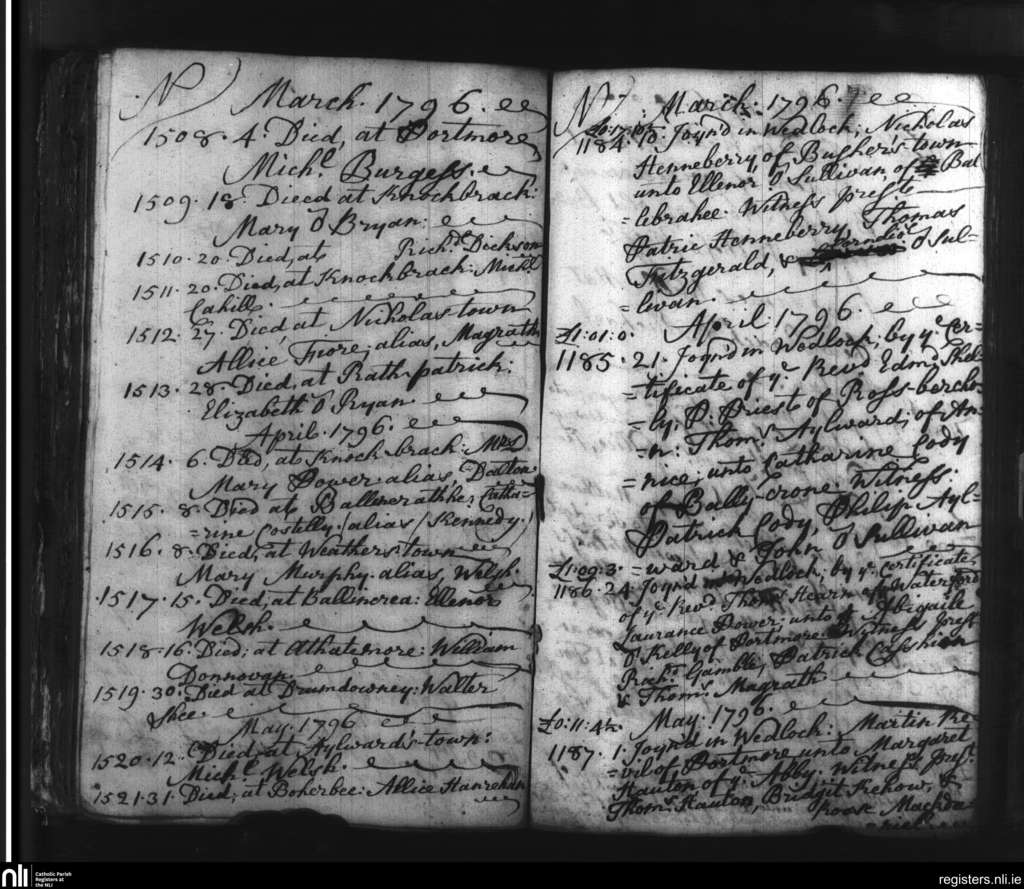 N March. 1796.
1508. 4. Died, at Portmore
Michl. Burgess.
1509. 18. Dieed at Knockbrack:
Mary O Bryan:
1510. 20. Died, at Richd. Dickson
1511. 20. Died, at Knockbrack: Michl.
Cahill.
1512. 27. Died, at Nicholastown
Allice Fiore, alias, Magrath
1513. 28. Died, at Rathpatrick:
Elizabeth O Ryan
April. 1796.
1514. 6. Died, at Knockbrack: Mrs.
Mary Power alias, Dalton
1515. 8. Died at Ballinerathke, Catha-
=rine Costilly /alias/ Kennedy.
1516. 8. Died, at Weatherstown
Mary Murphy. alias, Welsh.
1517. 15. Died, at Ballincrea: Ellenor
Welsh.
1518. 16. Died; at Athatemore: William
Donnovan.
1519. 30. Died at Drumdowney: Walter
Shee.
May. 1796
1520. 12. Died, at Aylwardstown:
Michl. Welsh.
1521. 31. Died, at Boherbee: Allice Hanrehan
N March: 1796.
1184. 10. Joyn'd in Wedlock; Nicholas
Henneberry, of Busherstown
unto Ellenor O Sullivan, of Bal
=lebrahee. Witness prest.
Patric Henneberry, Thomas
Fitzgerald, & Corneli. O Sul-
=livan
April. 1796.
£1:01:0.
1185. 21. Joyn'd in Wedlock; by ye. Cer-
=tificate of ye. Revd. Edmd. Shel-
=ly, P. Priest of Ross-berch-
=n: Thoms. Aylward; of An-
=nice; unto Catharine Cody
of Bally-crone. Witness.
Patrick Cody, Philip Ayl-
=ward & John O Sullivan
£1:09:3.
1186. 24. Joyn'd in Wedlock; by ye. Certificate,
of ye. Revd. Thos. Hearn of Waterford
Laurance Power; unto Abigaile
O Kelly of Portmore. Witness prest
Richd. Gamble, Patrick Cashion
& Thoms. Magrath
£0:11:4½ May. 1796.
1187. 1. Joyn'd in Wedlock: Martin Ke
=vil of Portmore unto Margaret
Hauton of ye. Abby. Witness prest.
Thoms. Hauton, Bridgit Kehow, &
Mackda
nli Catholic Parish
Registers at
the NLI
registers.nli.ie